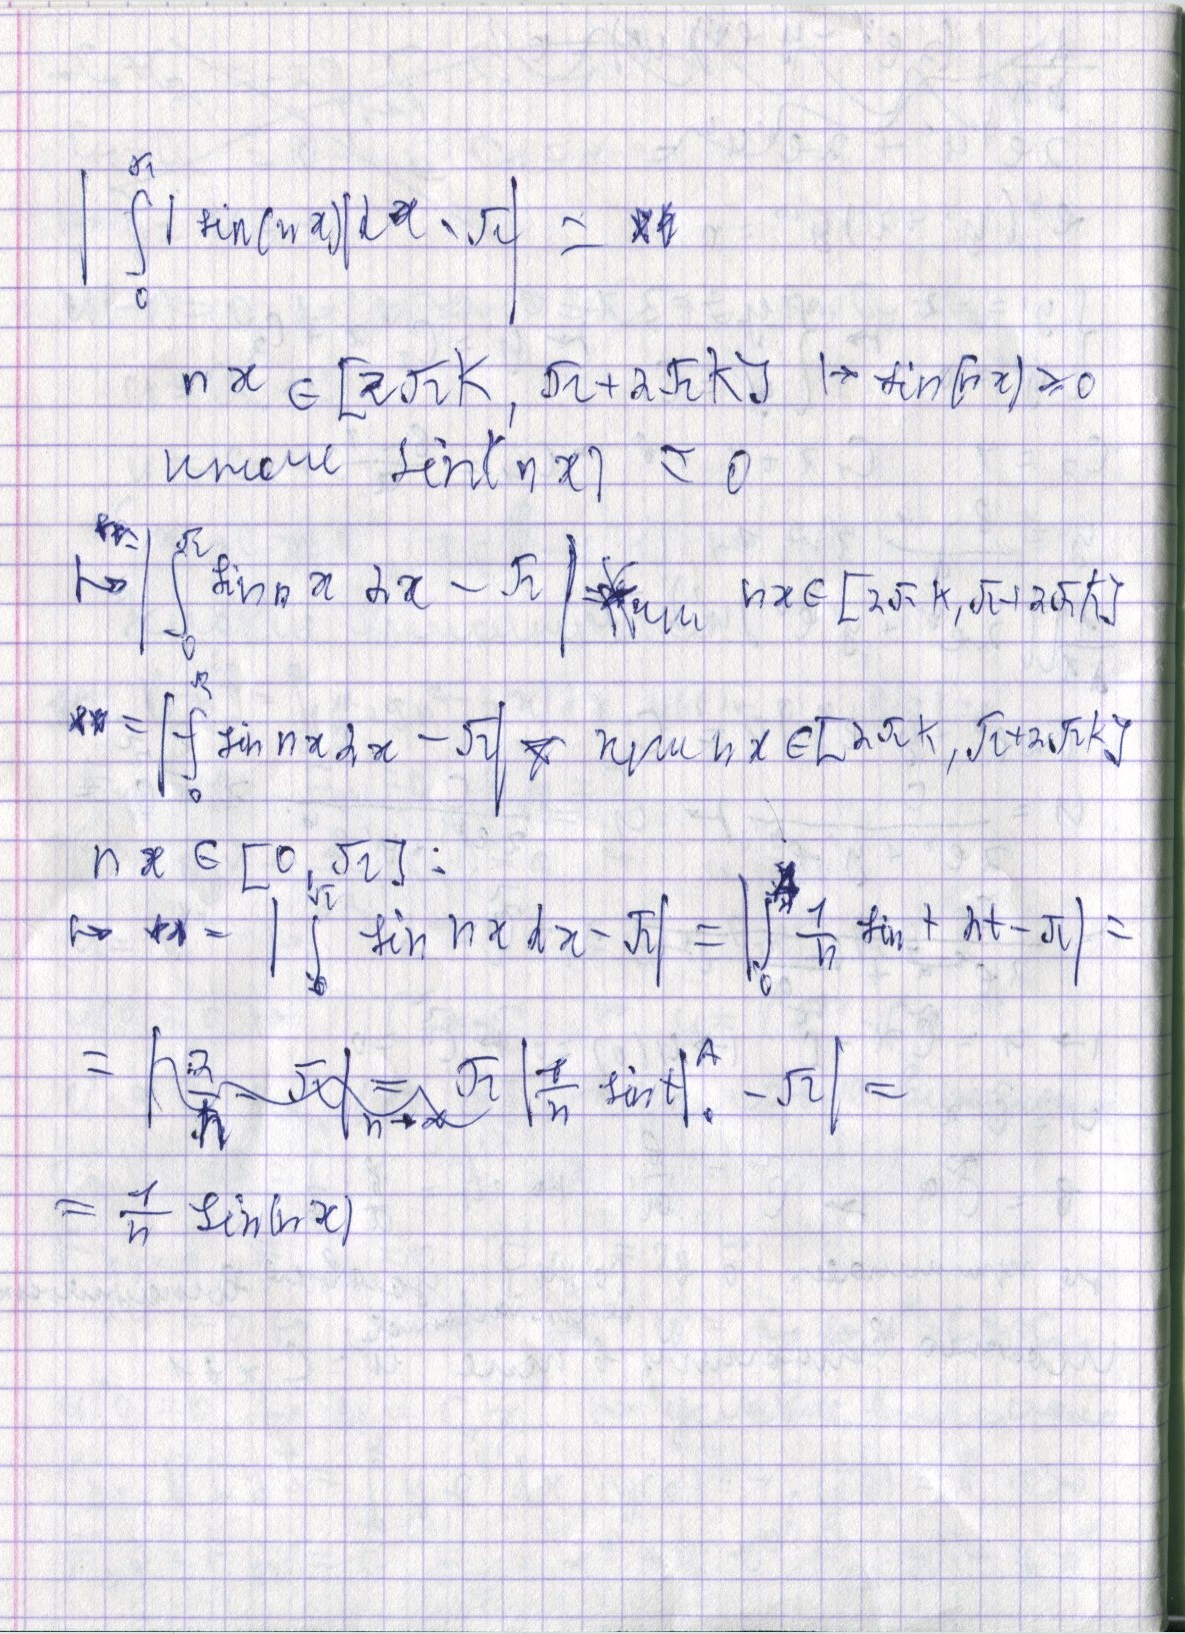 | ∫₀^π |sin(nx)|dx - π| = **
nx ∈ [2πk, π+2πk] ↦ sin(nx) ≥ 0
иначе sin(nx) ≤ 0
↦ | ∫₀^π sin nx dx - π | = при nx ∈ [2πk, π+2πk]
** = | ∫₀^π sin nx dx - π | при nx ∈ [2πk, π+2πk]
nx ∈ [0, π] :
↦ ** = | ∫₀^π sin nx dx - π | = | ∫₀^A 1/n sin t dt - π | =
= | 2/n - π | = n→∞ π | 1/n sin t |₀^A - π | =
= 1/n sin(nx)